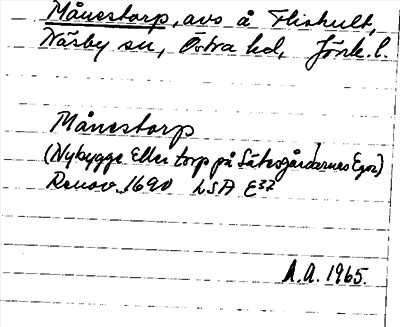 Månestorp, avs å Flishult,
Näsby sn, Östra hd, Jönk. l.
Månestorp
(Nybygge Eller torp på Sätesgårdarnes Egor)
Renov. 1690 LSA E37
A.A. 1965.